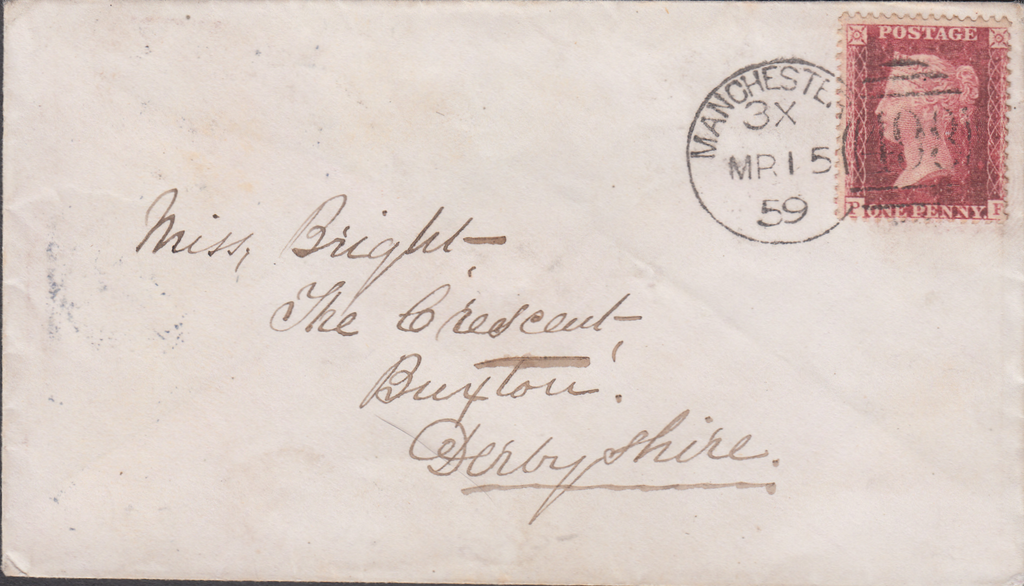 POSTAGE
MANCHESTE
3X
MR 15
59
P ONE PENNY F
Miss, Bright
The Crescent
Buxton.
Derbyshire.